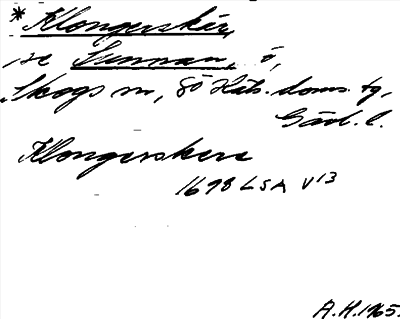 *Klongerskär,
se Sunnan, ö,
Skogs sn, Sö Häls. doms. tg,
Gävl. l.
Klongerskere
1698 LSA V13
A.H. 1965.